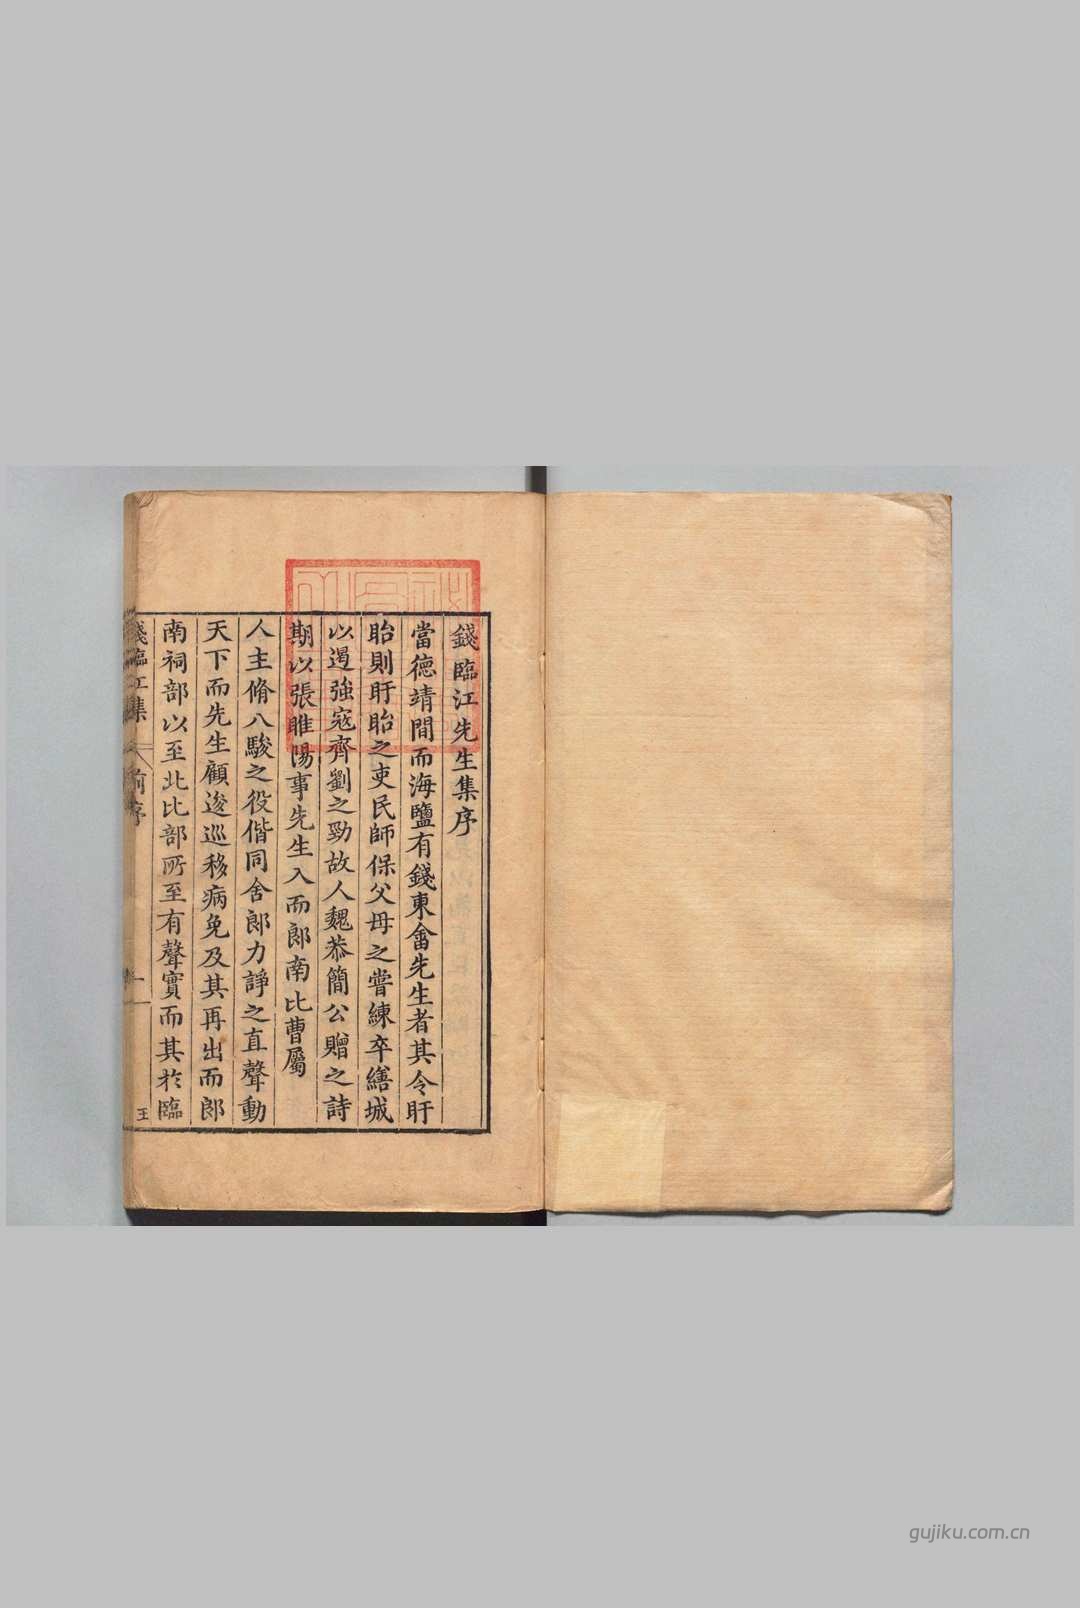 錢臨江先生集序
當德靖間而海鹽有錢東畬先生者其令盱
眙則盱眙之吏民師保父母之嘗練卒繕城
以遏強寇齊劉之勁故人魏恭簡公贈之詩
期以張睢陽事先生入而郎南比曹屬
人主脩八駿之役偕同舍郎力諍之直聲動
天下而先生顧逡巡移病免及其再出而郎
南祠部以至北比部所至有聲實而其於臨
錢臨江集 前序 一
王
gujiku.com.cn